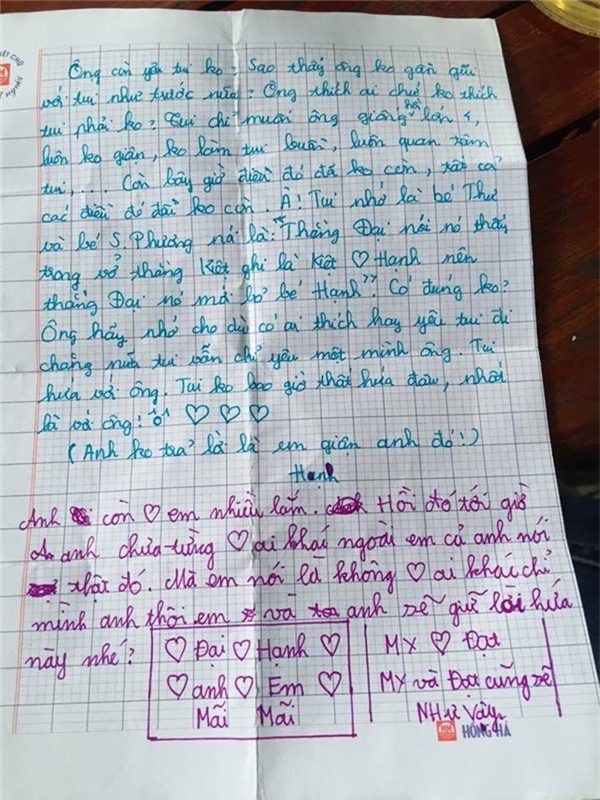 Ông còn yêu tui ko? Sao thấy ông ko gần gũi
với tui như trước nữa? Ông thích ai chứ ko thích
tui phải ko? Tui chỉ muốn ông giống hồi lớp 4,
luôn ko giận, ko làm tui buồn, luôn quan tâm
tui,... Còn bây giờ điều đó đã ko còn, tất cả
các điều đó đãi ko còn. À! Tui nhớ là bé Thư
và bé S. Phương nói là: "Thằng Đại nói nó thấy
trong vở thằng Kiệt ghi là Kiệt ♡ Hạnh nên
thằng Đại nó mới bỏ bé Hạnh". Có đúng ko?
Ông hãy nhớ cho dù có ai thích hay yêu tui đi
chăng nữa tui vẫn chỉ yêu một mình ông. Tui
hứa với ông. Tui ko bao giờ thất hứa đâu, nhất
là với ông! ♡ ♡ ♡
(Anh ko trả lời là em giận anh đó!)
Hạnh
Anh còn ♡ em nhiều lắm. Hồi đó tới giờ
anh chưa từng ♡ ai khác ngoài em cả anh nói
thật đó. Mà em nói là không ♡ ai khác chỉ
mình anh thôi em và anh sẽ giữ lời hứa
này nhé?
♡ Đại ♡ Hạnh ♡
♡ anh ♡ Em ♡
Mãi Mãi
MX ♡ Đạt
MX và Đạt cũng sẽ
NHư Vậy
HỒNG HÀ